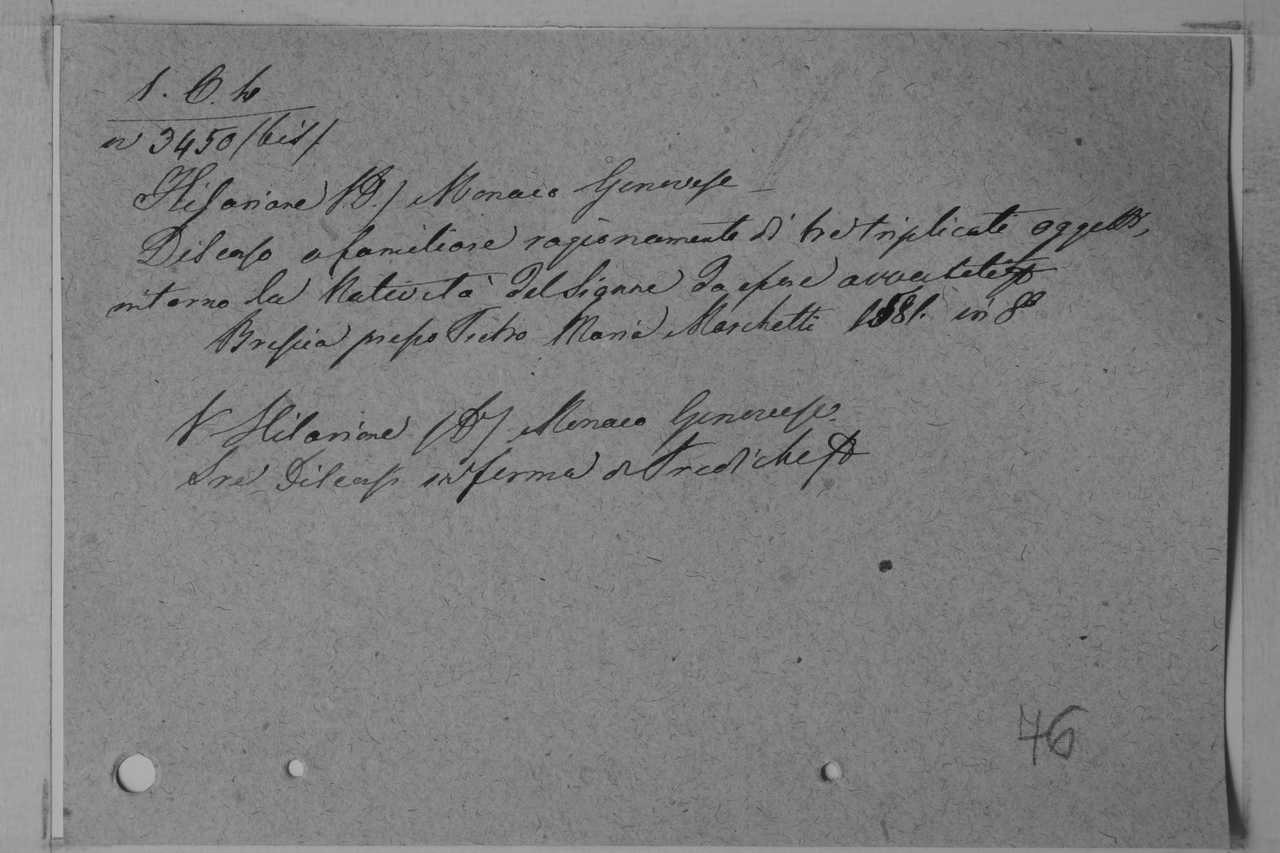 1. C. h
n 3450 /bis/
Hilarione /D./ Monaco Genovese —
Discorso o familiare ragionamento di tre triplicate oggetti,
intorno la Natività del Signore da essere
Brescia presso Pietro Maria Marchetti 1581. in 8º
V Hilarione /D/ Monaco Genovese.
Discorsi in forma di Prediche
76